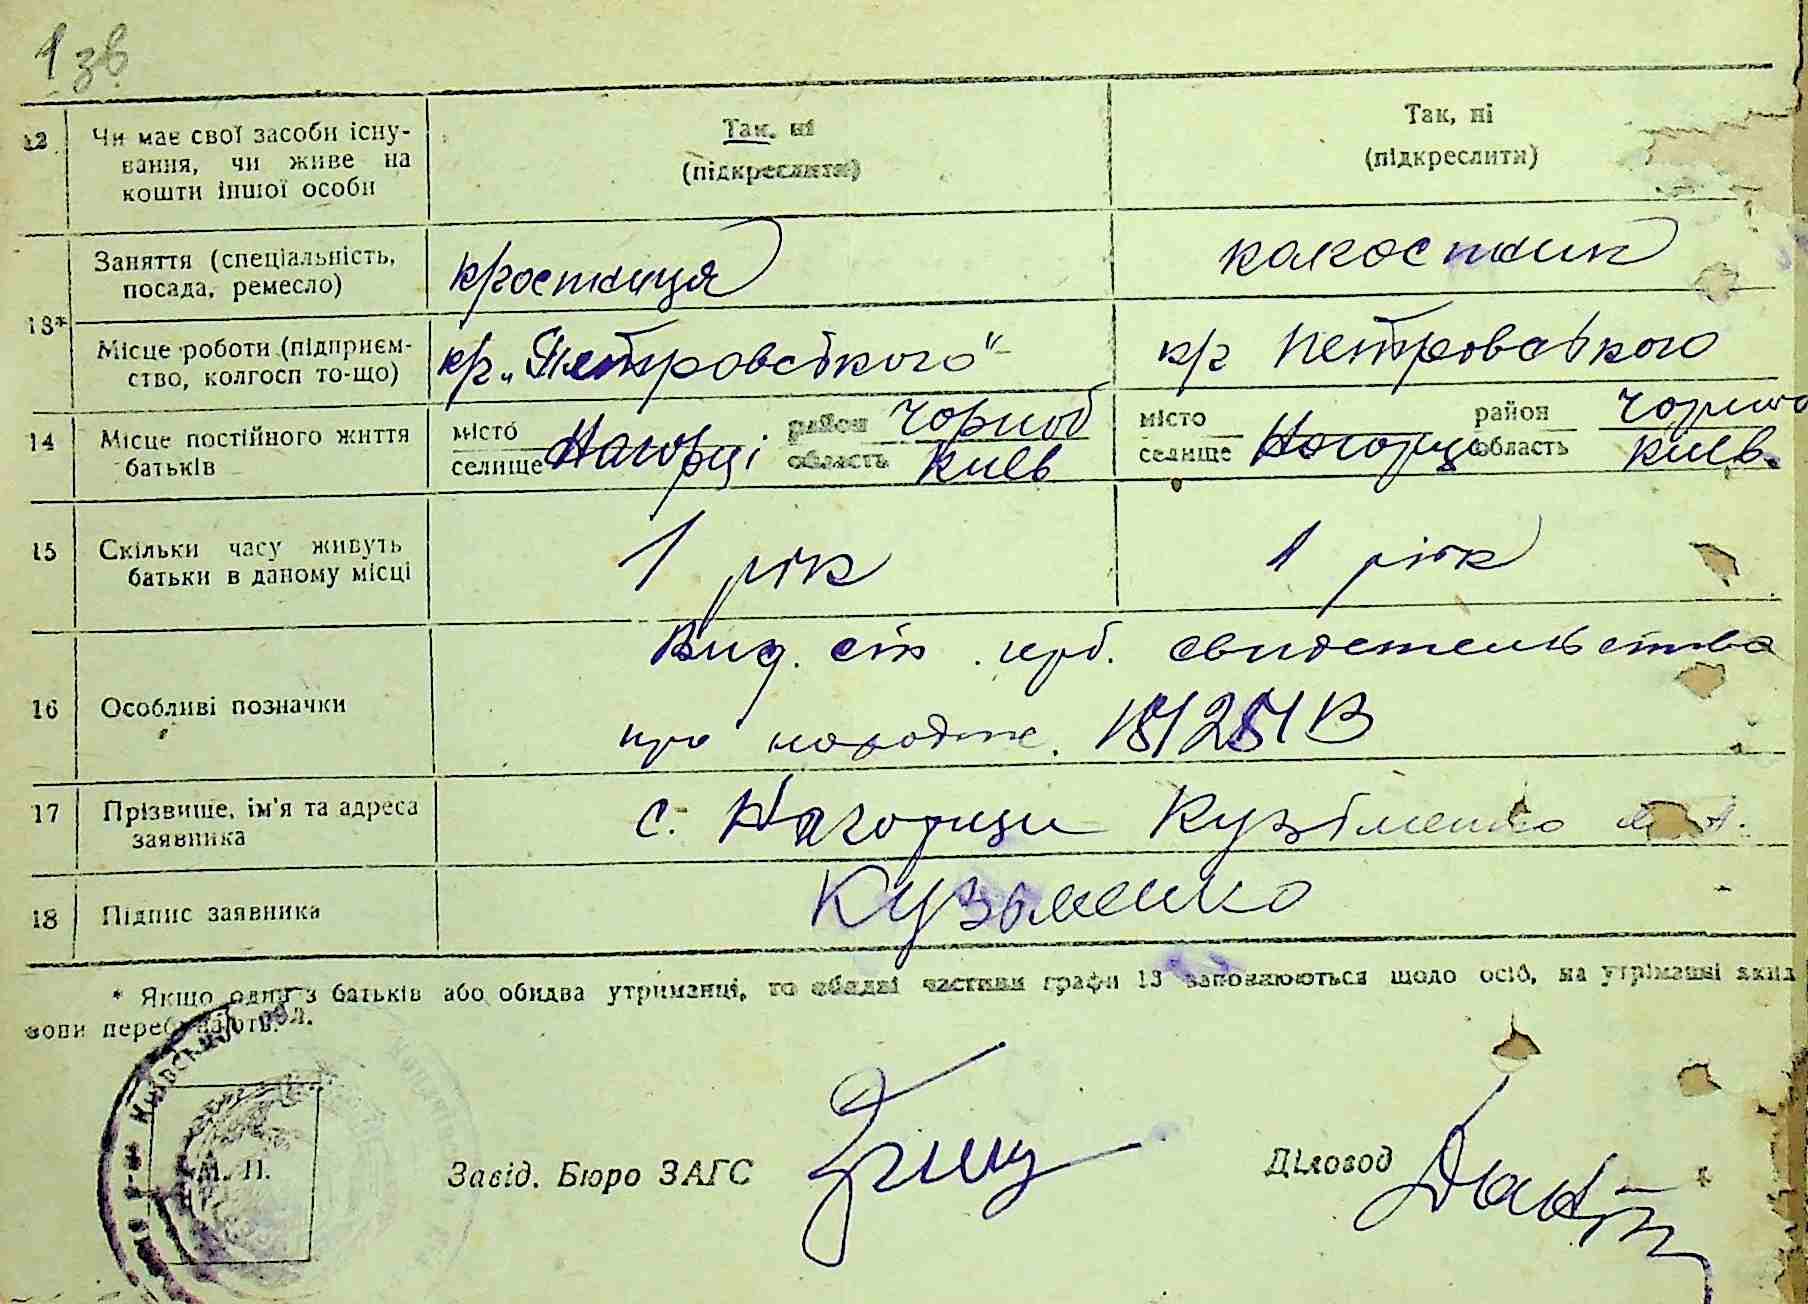 1 зв
12 Чи має свої засоби існу- Так, ні Так, ні
вання, чи живе на (підкреслити) (підкреслити)
кошти іншої особи
13* Заняття (спеціальність, к/госпниця колгоспник
посада, ремесло)
Місце роботи (підприєм- к/г „Петровського" к/г Петровського
ство, колгосп то-що)
14 Місце постійного життя місто район Чорноб місто район Чорно
батьків селище Нагорці область Киев селище Нагорці область Киев.
15 Скільки часу живуть 1 рік 1 рік
батьки в даному місці
16 Особливі позначки Вид. свидетельства
про народж.
17 Прізвище, ім'я та адреса с. Нагорци Кузьменко
заявника
18 Підпис заявника Кузьменко
* Якщо один з батьків або обидва утриманці, то обидві частини графи 13 заповнюються щодо осіб, на утриманні яких
вони перебувають.
М. П. Завід. Бюро ЗАГС Діловод